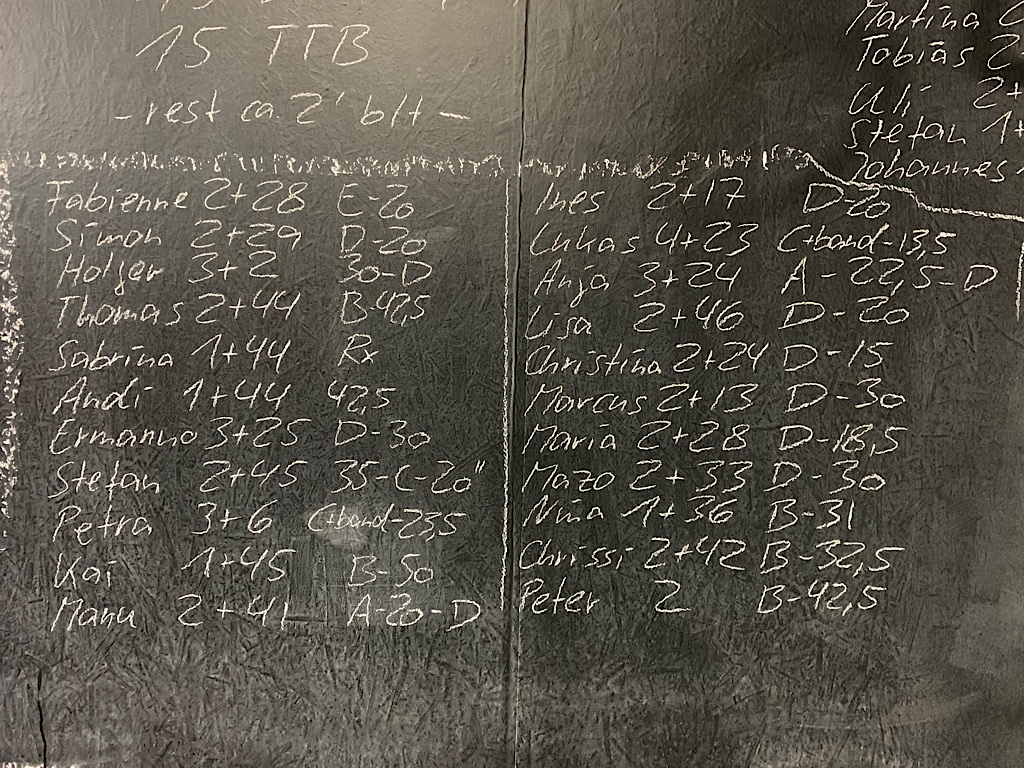 15 TTB
- rest ca. 2' blt -
Fabienne 2+28 E-20
Simon 2+29 D-20
Holger 3+2 30-D
Thomas 2+44 B-42,5
Sabrina 1+44 Rx
Andi 1+44 42,5
Ermanno 3+25 D-30
Stefan 2+45 35-C-20"
Petra 3+6 C+band-23,5
Kai 1+45 B-50
Manu 2+41 A-20-D
Martina
Tobias 2
Uli 2+
Stefan 1+
Johannes
Ines 2+17 D-20
Lukas 4+23 C+band-13,5
Anja 3+24 A-22,5-D
Lisa 2+46 D-20
Christina 2+24 D-15
Marcus 2+13 D-30
Maria 2+28 D-18,5
Mazo 2+33 D-30
Nina 1+36 B-31
Chrissi 2+42 B-32,5
Peter 2 B-42,5